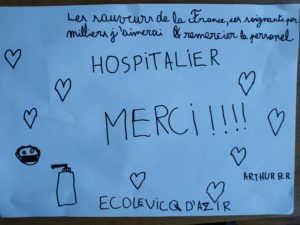 Les sauveurs de la France, ces soignants par
milliers j'aimerai le remercier le personel
HOSPITALIER
MERCI !!!!
ARTHUR B.R
ECOLEVICQ D'AZIR